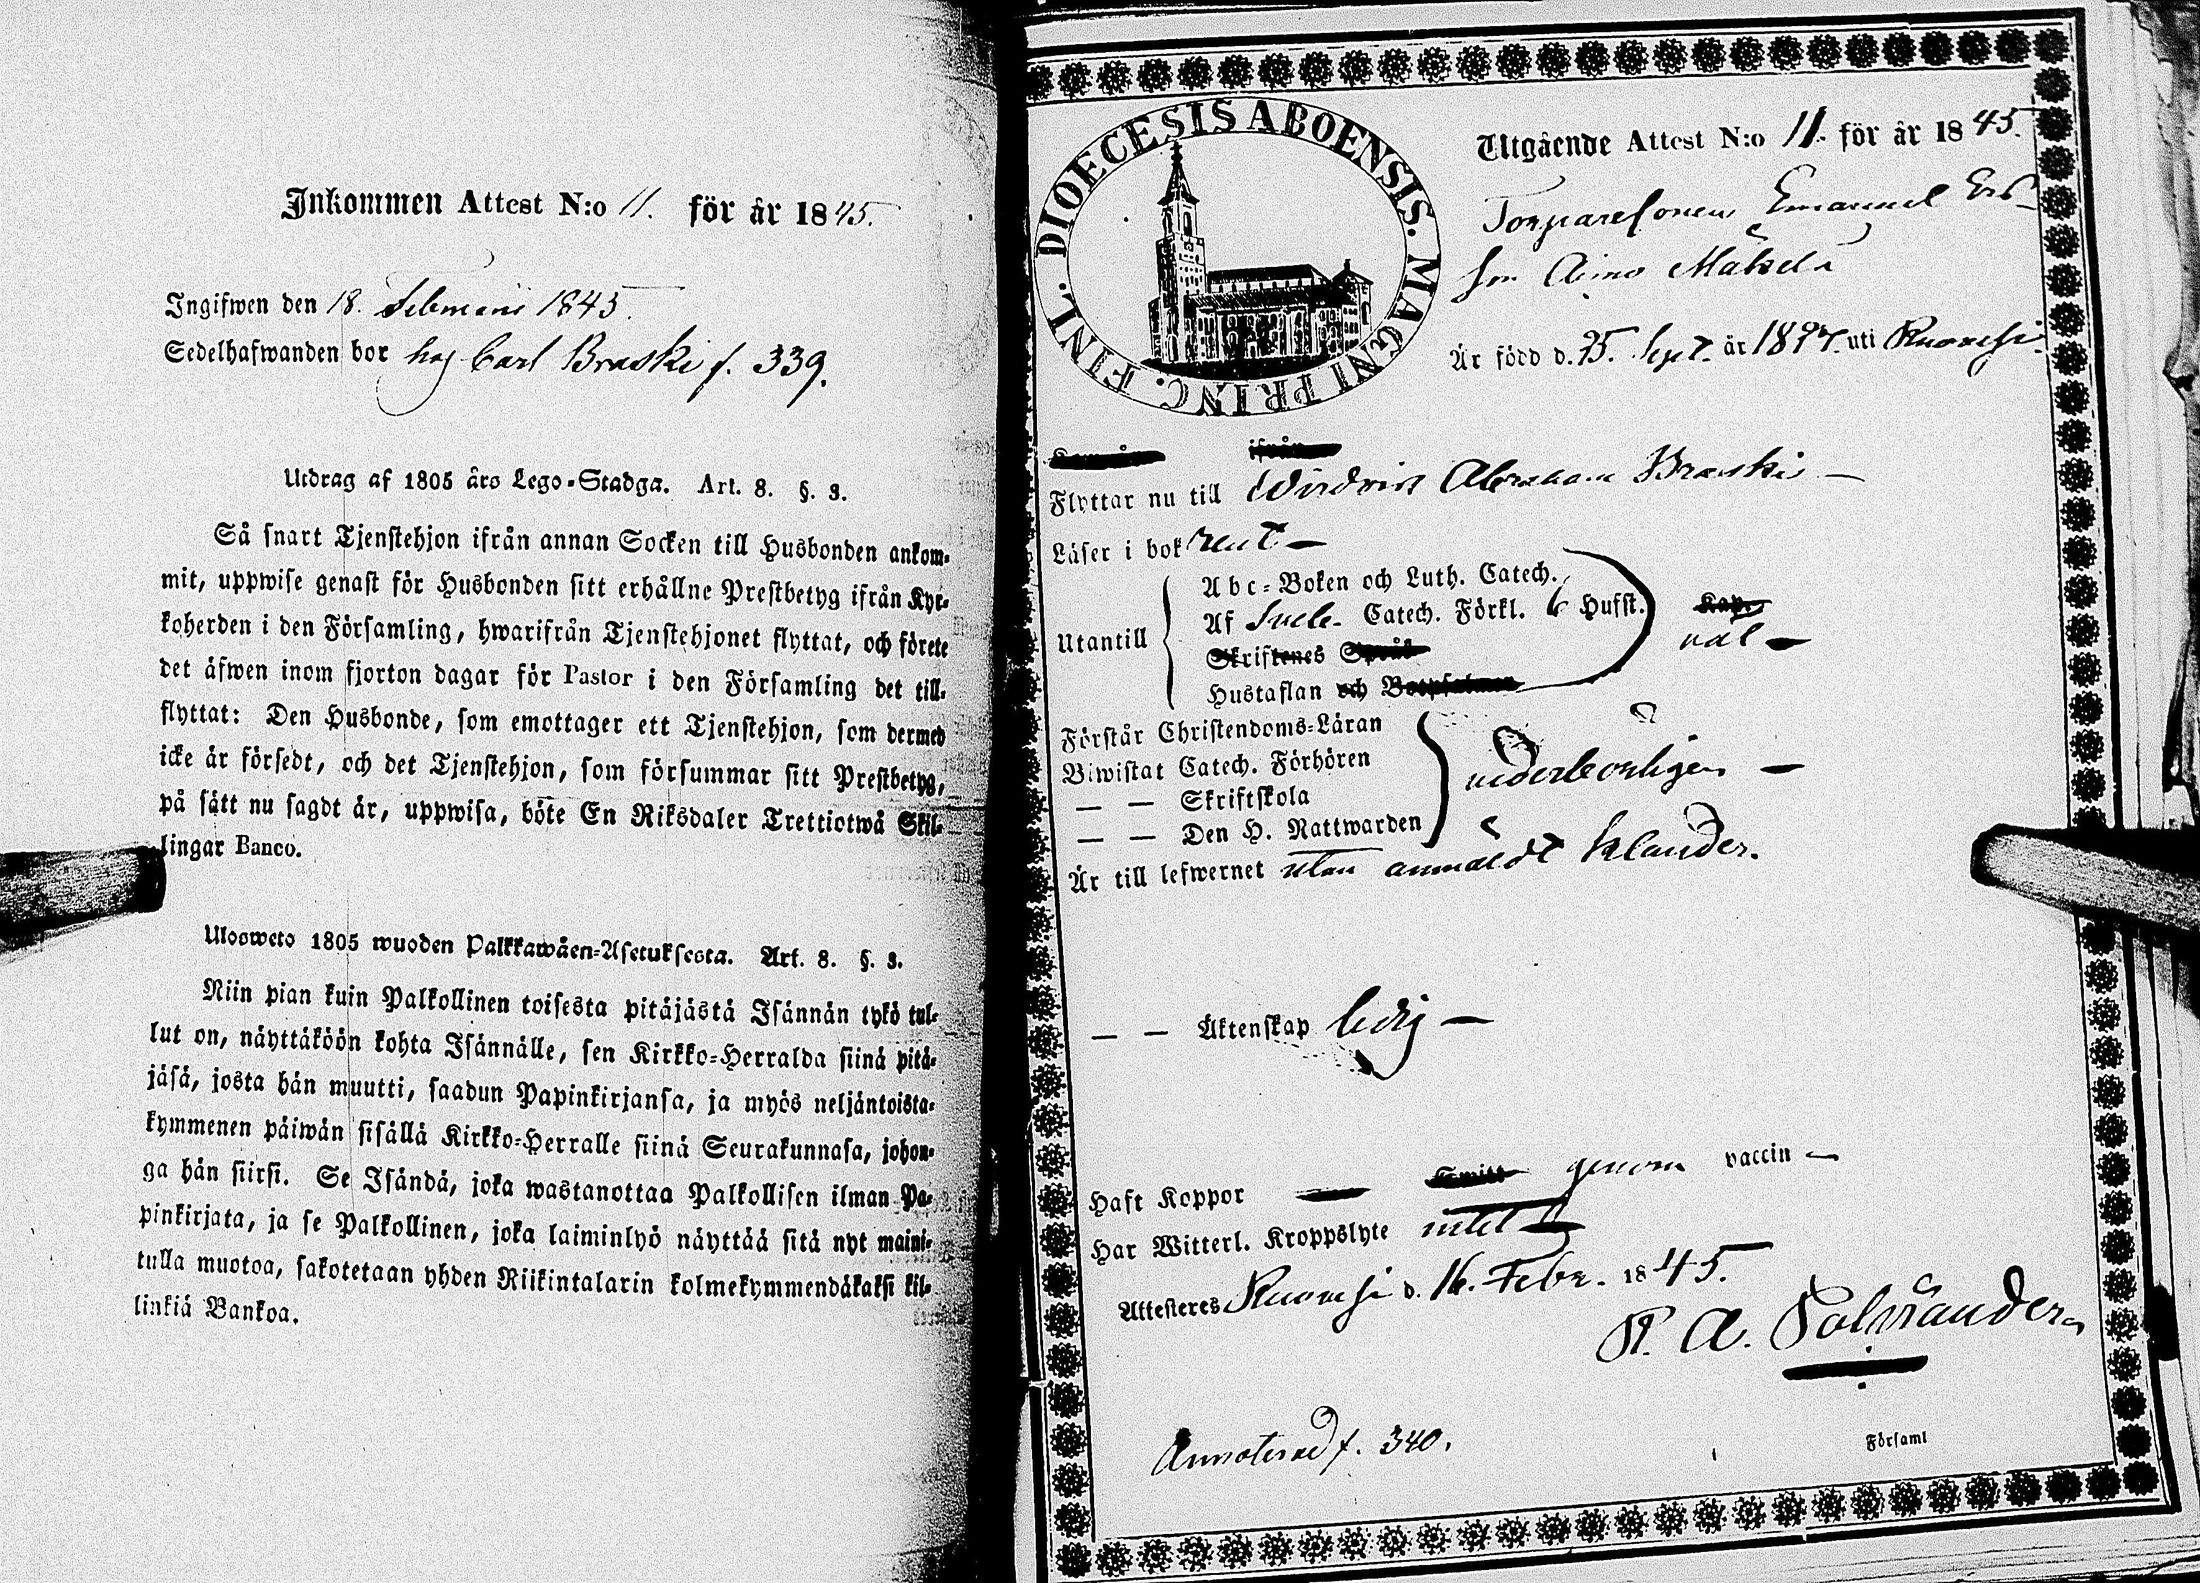 Inkommen Attest N:o 11. för år 1845.
Ingifwen den 18. Februarii 1845.
Sedelhafwanden bor hos Carl Braski f. 339.
Utdrag af 1805 års Lego-Stadga. Art. 8. §. 3.
Så snart Tjenstehjon ifrån annan Socken till Husbonden ankom-
mit, uppwise genast för Husbonden sitt erhållne Prestbetyg ifrån Kyr-
koherden i den Församling, hwarifrån Tjenstehjonet flyttat, och förete
det äfwen inom fjorton dagar för Pastor i den Församling det till-
flyttat: Den Husbonde, som emottager ett Tjenstehjon, som dermed
icke är försedt, och det Tjenstehjon, som försummar sitt Prestbetyg,
på sätt nu sagdt är, uppwisa, böte En Riksdaler Trettiotwå Skil-
lingar Banco.
Ulosweto 1805 wuoden Palkkawäen-Asetuksesta. Art. 8. §. 3.
Niin pian kuin Palkollinen toisesta pitäjästä Isännän tykö tul-
lut on, näyttäköön kohta Isännälle, sen Kirkko-Herralda siinä pitä-
jäsä, josta hän muutti, saadun Papinkirjansa, ja myös neljäntoista-
kymmenen päiwän sisällä Kirkko-Herralle siinä Seurakunnasa, johon-
ga hän siirsi. Se Isändä, joka wastanottaa Palkollisen ilman Pa-
pinkirjata, ja se Palkollinen, joka laiminlyö näyttää sitä nyt maini-
tulla muotoa, sakotetaan yhden Riikintalarin kolmekymmendäkaksi kil-
linkiä Bankoa.
DIOECESIS ABOENSIS. MAGNI PRINC. FINL.
Utgående Attest N:o 11. för år 1845.
Torparesonen Emanuel Ers-
son Aimo Mäkelä
Är född d. 25. Sept. år 1827. uti Ruovesi
ifrån
Flyttar nu till Birdois Abraham Braski —
Läser i bok rent —
Abc-Boken och Luth. Catech.
Utantill Af Sveb. Catech. Förkl. 6 Hufst. Kap.
väl —
Skriftenes Språk
Hustaflan och Botpsalmen
Förstår Christendoms-Läran
Biwistat Catech. Förhören
vederbörligen —
— — Skriftskola
— — Den H. Nattwarden
Är till lefwernet utan anmäldt klander.
— — Äktenskap ledig —
Haft Koppor genom vaccin —
Har Witterl. Kroppslyte intet
Attesteres Ruovesi d. 16. Febr. 1845.
A.
Annoterad f. 340.
Församl